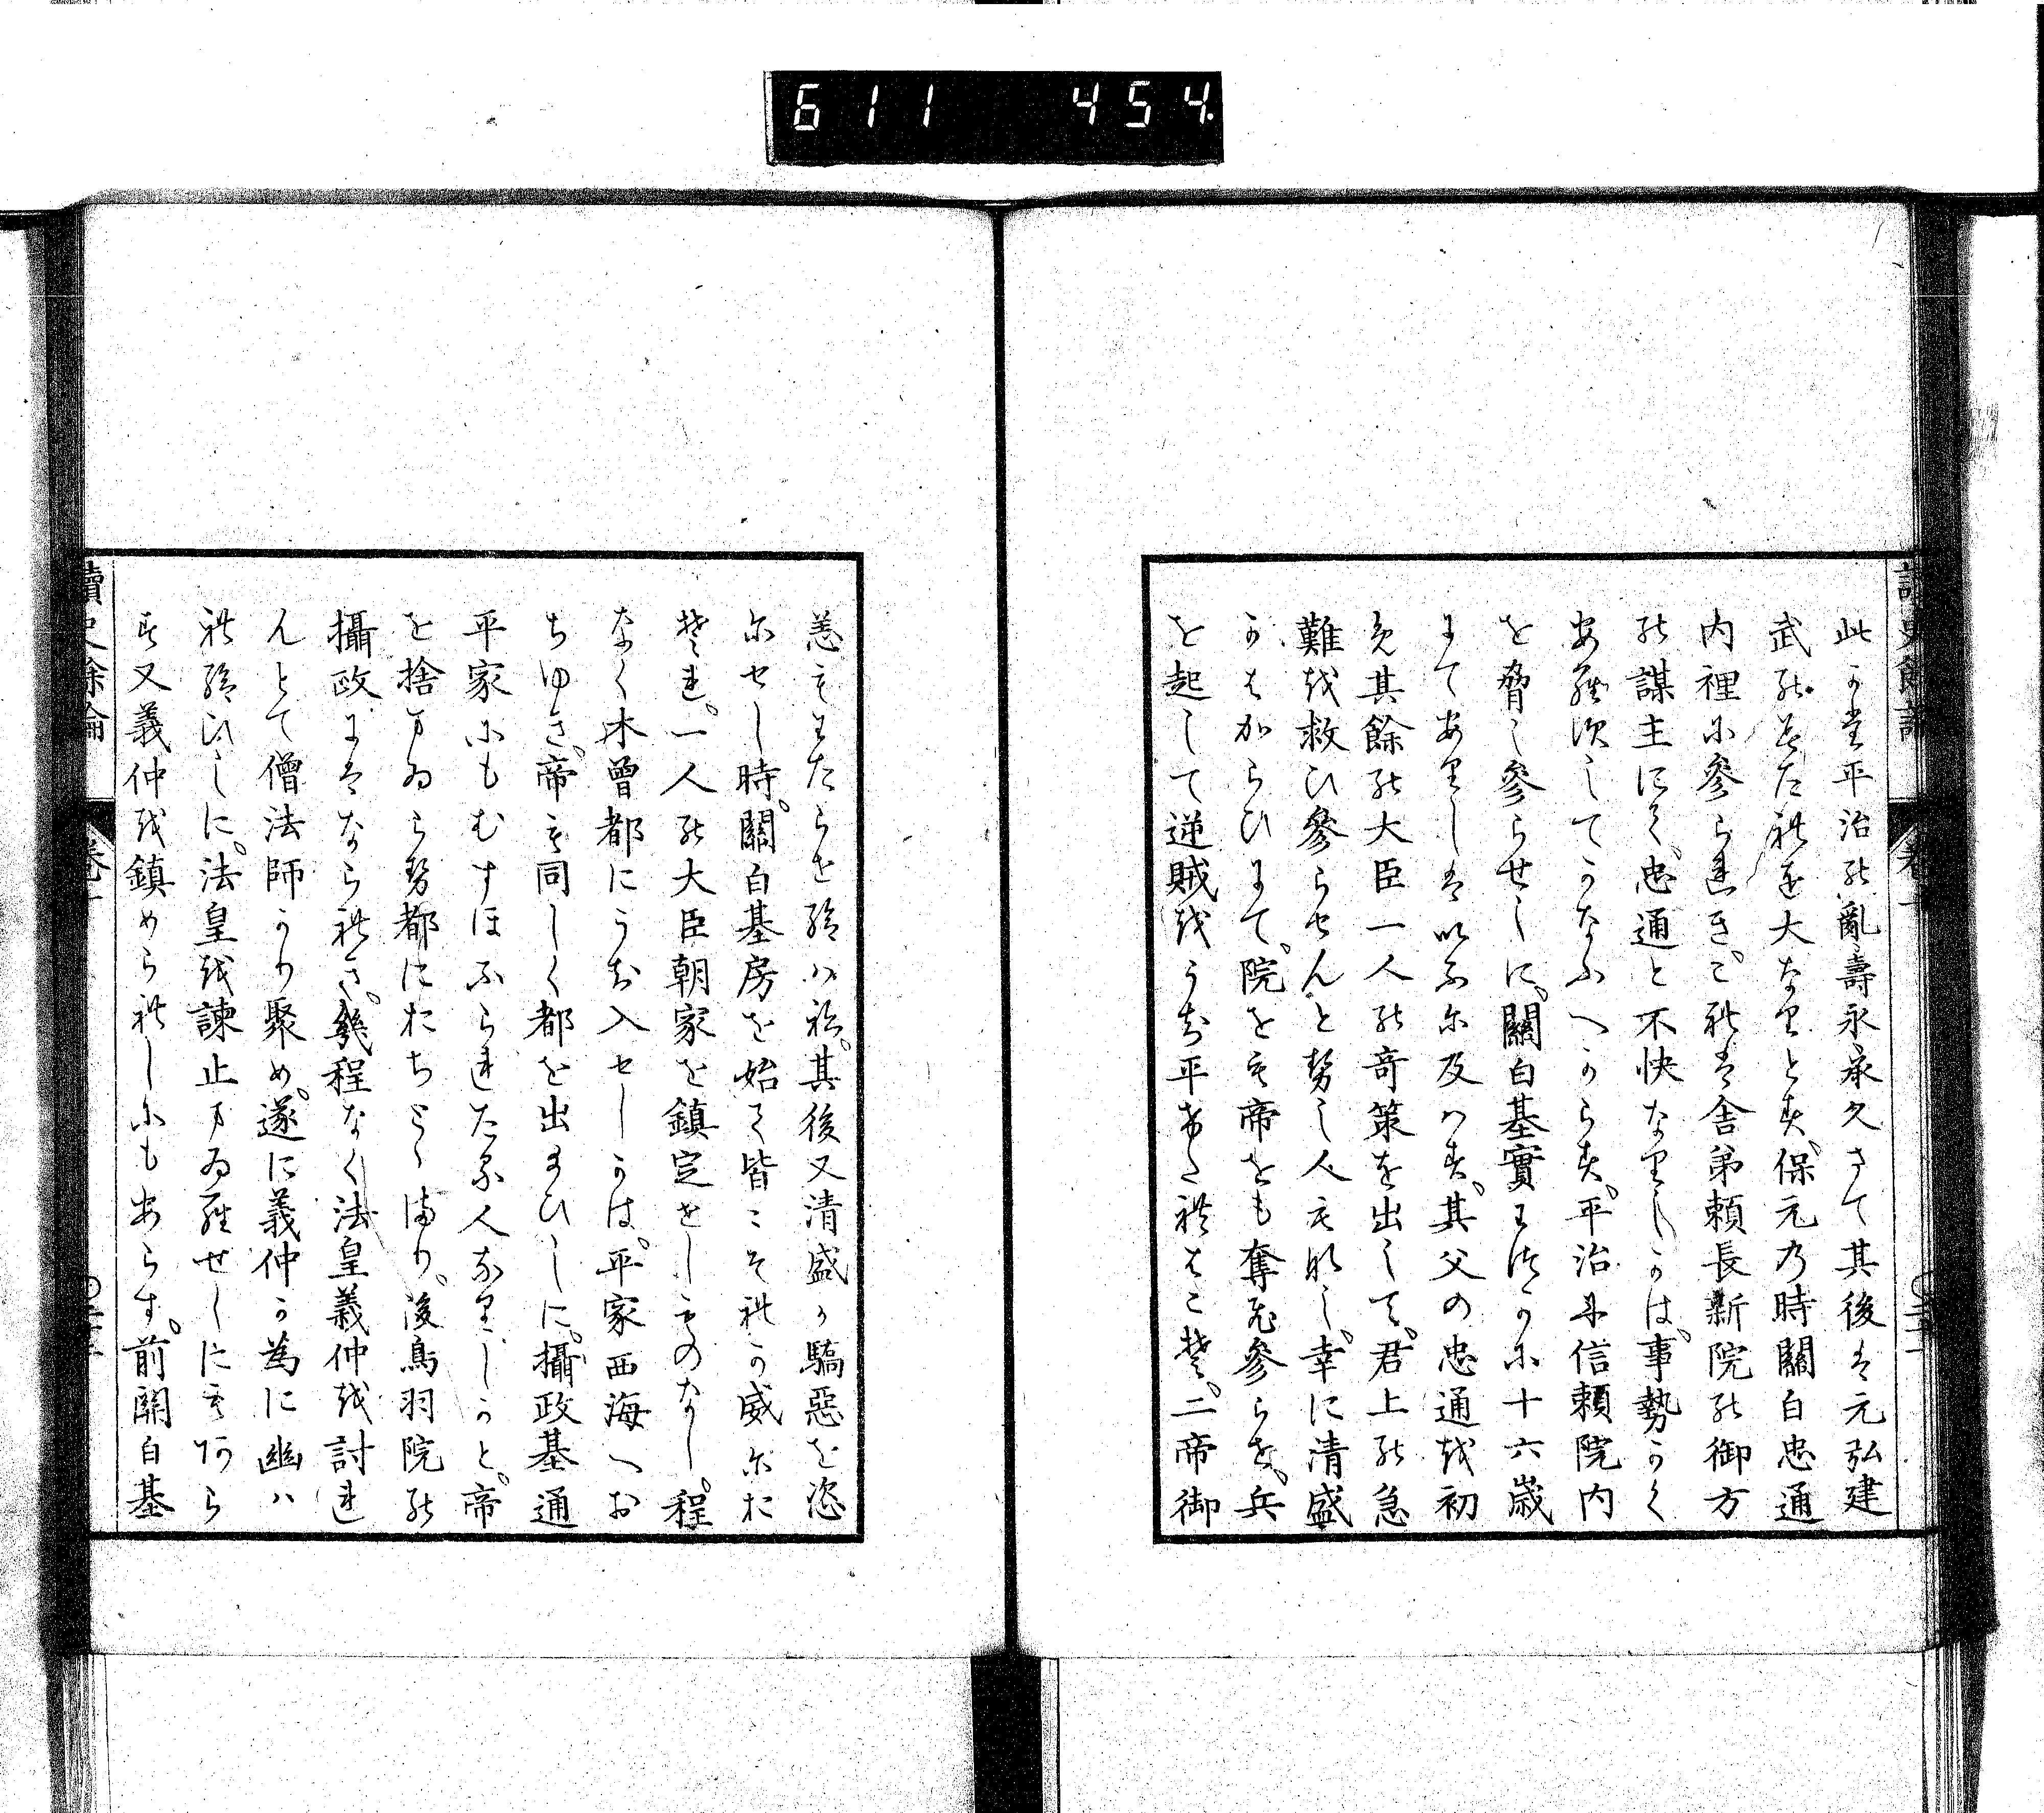 611 454.
讀史餘論
卷一
此かた平治の亂壽永承久さて其後は元弘建
武のみたれを大なりとす。保元の時關白忠通
内裡に參られき。これは舍弟頼長新院の御方
の謀主にて、忠通と不快なりしかは。事勢かく
あるへしてかなふへからす。平治に信頼院内
を脅し參らせしに。關白基實わつかに十六歲
にてありしは以ふに及はす。其父の忠通を初
め其餘の大臣一人の奇策を出して。君上の急
難を救ひ參らせんと勢し人もなし。幸に清盛
かはからひにて。院をも帝をも奪ひ參らせ。兵
を起して逆賊をうち平けたれはこそ。二帝御
恙もわたらせ給はね。其後又清盛か驕惡を恣
にせし時。關白基房を始て皆こそれか威におそれ
。一人の大臣朝家を鎮定せしものなし。程
なく木曾都にうち入せしかは。平家西海へお
ちゆき。帝も同しく都を出給ひしに。攝政基通
平家にもむすほふられたる人なりしかと。帝
を捨まゐらせ都にたちとゝまり。後鳥羽院の
攝政にはなられき。幾程なく法皇義仲を討れ
んとて僧法師かり聚め。遂に義仲か為に幽は
れ給ひしに。法皇を諫止まゐらせしにもあら
す又義仲を鎮められしにもあらす。前關白基
讀史餘論
卷一